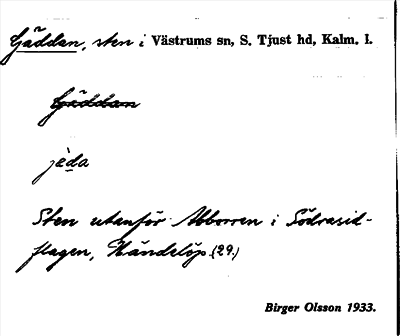 Gäddan, sten i Västrums sn, S. Tjust hd, Kalm. l.
Gäddan
jèda
Sten utanför Abborren i Södrasid-
flagen, Händelöp. (29.)
Birger Olsson 1933.